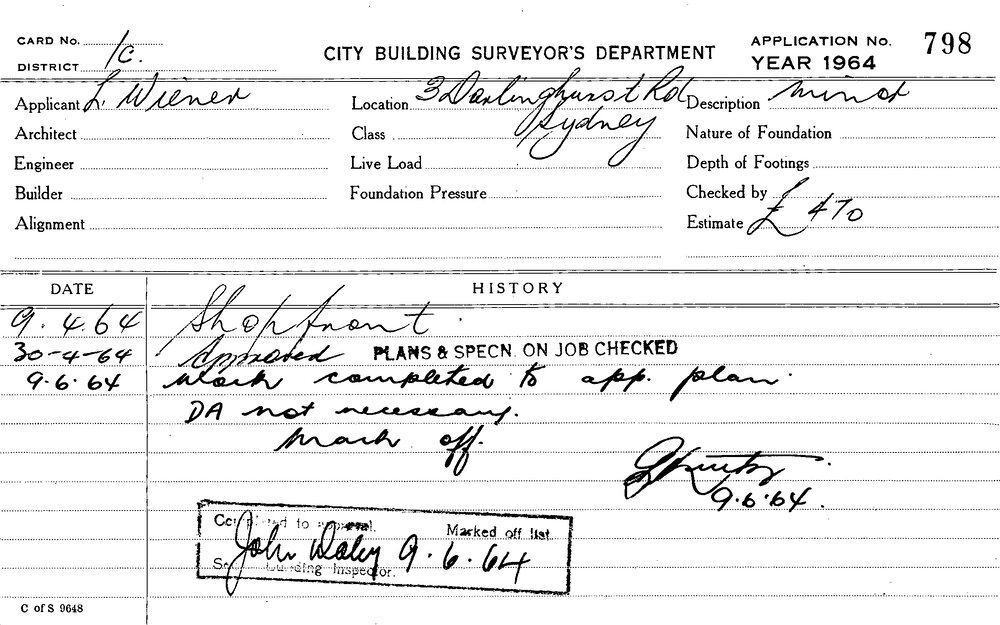 CARD No. 1c.
DISTRICT
CITY BUILDING SURVEYOR'S DEPARTMENT
APPLICATION No. 798
YEAR 1964
Applicant L. Wiener
Location 3 Darlinghurst Rd
Sydney
Description minor
Architect
Class
Nature of Foundation
Engineer
Live Load
Depth of Footings
Builder
Foundation Pressure
Checked by
Alignment
Estimate £ 470
DATE HISTORY
9.4.64 Shop front.
30-4-64 Approved PLANS & SPECN. ON JOB CHECKED
9.6.64 Work completed to app. plan.
DA not necessary.
Mark off.
9.6.64.
Completed to approval. Marked off list
John Daley 9.6.64
Building Inspector.
C of S 9648